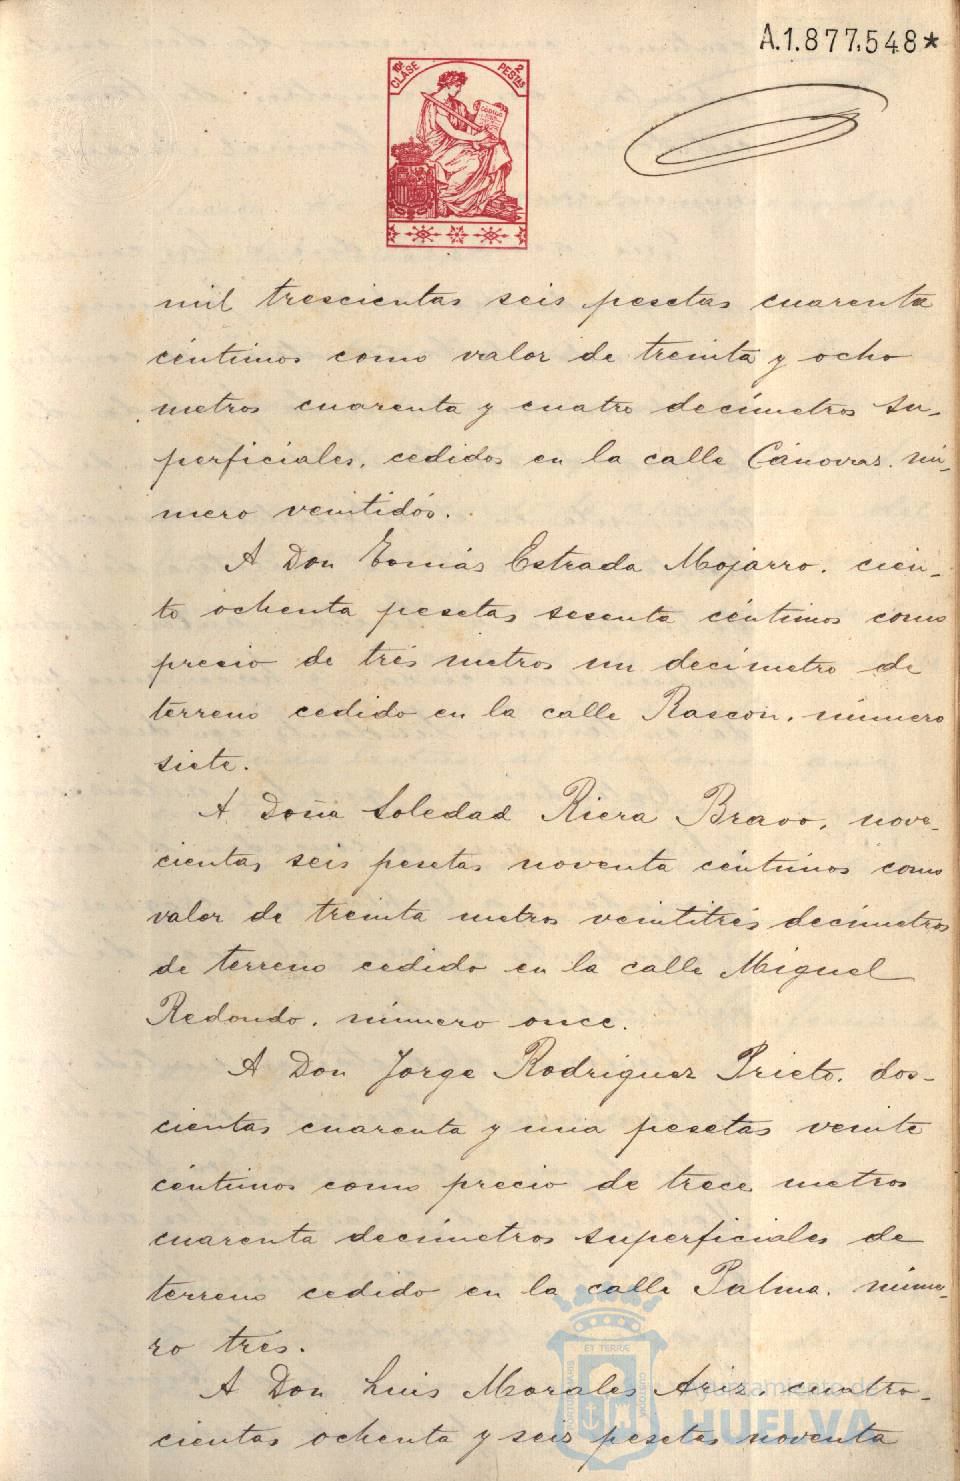 A.1.877.548*
10ª CLASE
2 PESTAS
CODIGO
mil trescientas seis pesetas cuarenta
céntimos como valor de treinta y ocho
metros cuarenta y cuatro decímetros su-
perficiales, cedidos en la calle Cánovas, nú-
mero veintidós.
A Don Tomás Estrada Mojarro, cien-
to ochenta pesetas sesenta céntimos como
precio de trés metros un decímetro de
terreno cedido en la calle Rascón, número
siete.
A Doña Soledad Riera Bravo, nove-
cientas seis pesetas noventa céntimos como
valor de treinta metros veintitrés decímetros
de terreno cedido en la calle Miguel
Redondo, número once.
A Don Jorge Rodriguez Prieto, dos-
cientas cuarenta y una pesetas veinte
céntimos como precio de trece metros
cuarenta decímetros superficiales de
terreno cedido en la calle Palma, núme-
ro trés.
A Don Luis Morales Ariz, cuatro-
cientas ochenta y seis pesetas noventa
ET TERRE
PORTUS MARIS
CUSTODIA
Ayuntamiento de
HUELVA